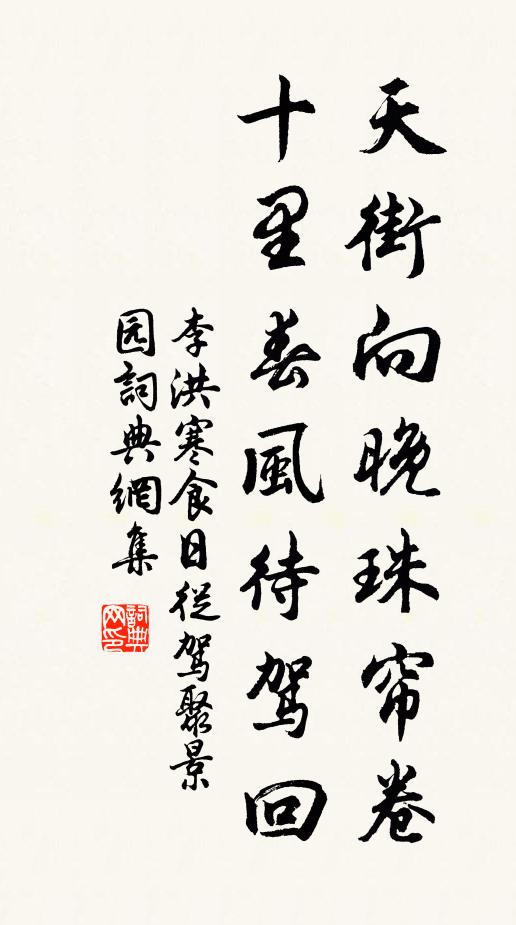 天街向晚珠帘卷
十里春風待駕回
李洪寒食日從駕聚景
园詞典網集
詞典
网印